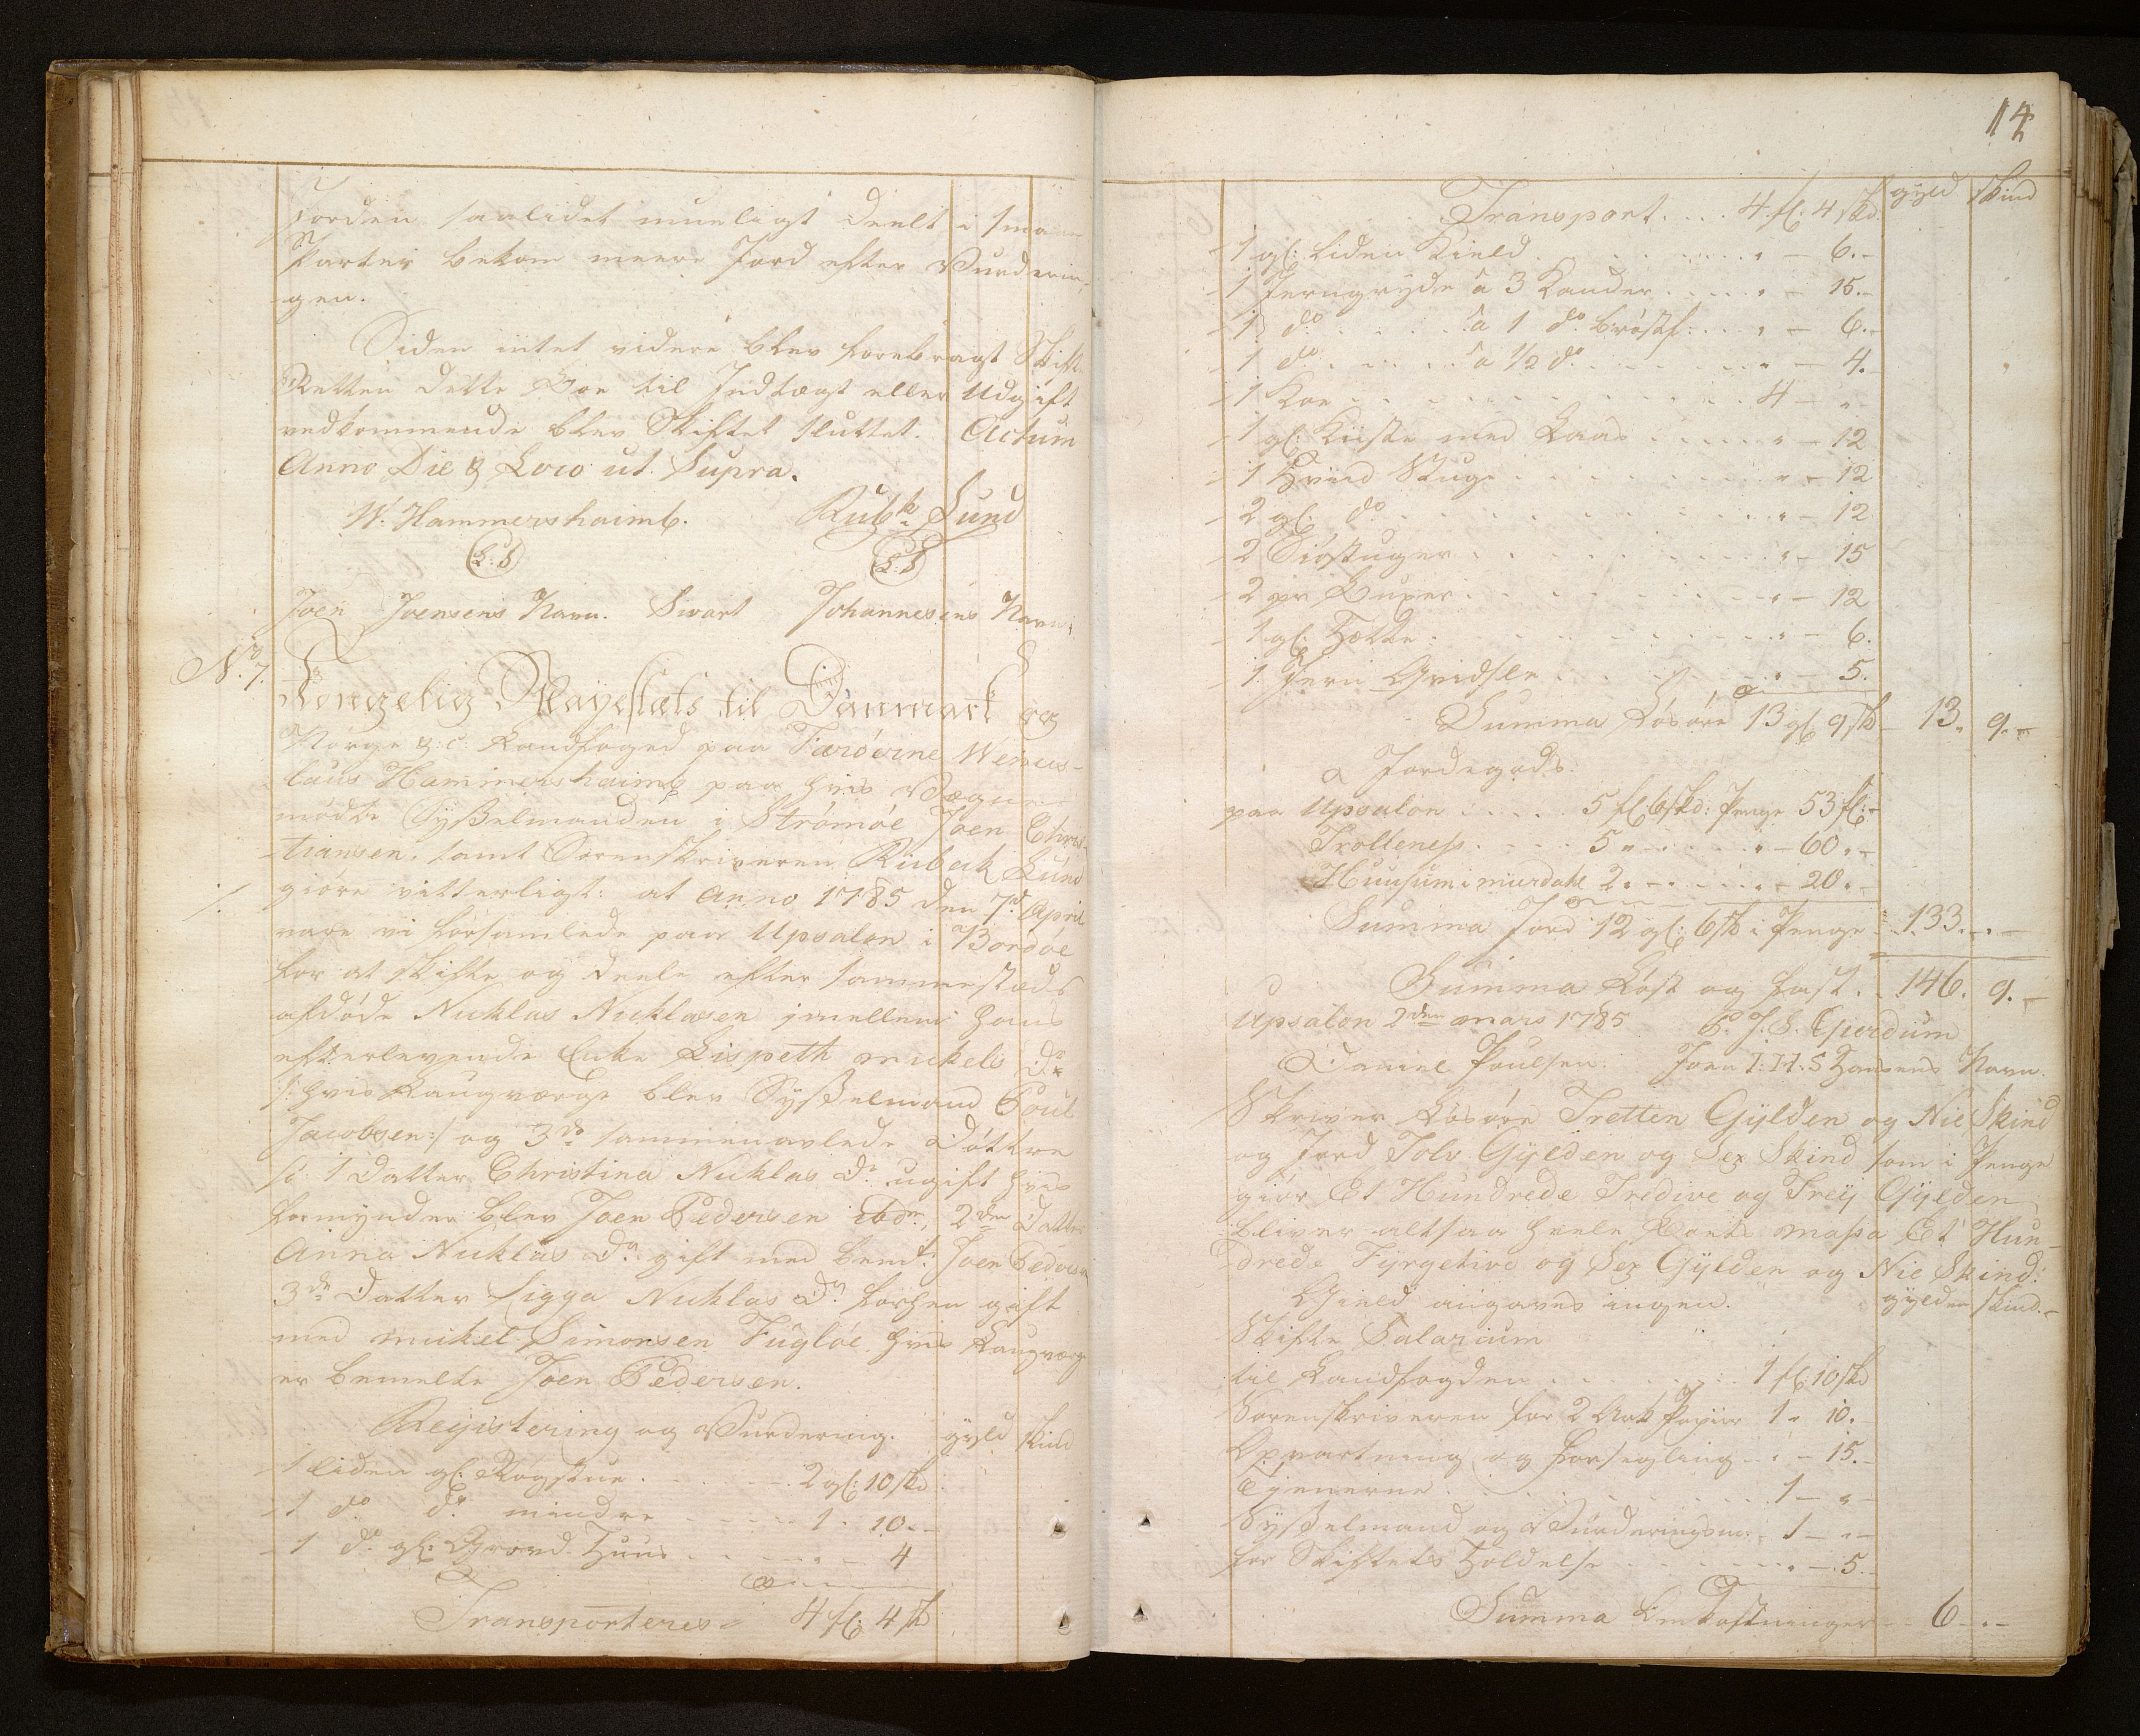 Jorden saalidet mueligt deelt i smaa
Parter bekom meere Jord efter Vurderin-
gen.
Siden intet videre blev forebragt Skifte
Retten dette Boe til Indtægt eller Udgift
vedkommende blev Skiftet sluttet. Actum
Anno Die & Loco ut Supra.
W. Hammershaimb. Rubk Lund
(L:S) (L:S)
Joen Joensens Navn. Swart Johannesens Navn.
No. 7.
Kongelig Mayestæts til Danmark og
Norge &:c: Landfoged paa Færöerne Wences-
laus Hammershaimb paa hvis Vægne
mödte Sysselmanden i Strömöe Joen Chris-
tiansen, samt Sorenskriveren Rübeck Lund
giöre vitterligt: at Anno 1785 den 7de April
vare vi forsamlede paa Upsalon i Bordöe
for at skifte og deele efter sammestæds
afdöde Nicklas Nicklasen imellem hans
efterlevende Enke Lispeth Mickels Dr
/: hvis Laugværge blev Sysselmand Poul
Jacobsen:/ og 3de sammenavlede Döttre
s: 1 Datter Christina Nicklas Dr. ugift hvis
formynder blev Joen Pedersen ibdm, 2den Datter
Anna Nicklas Dr. gift med bemt. Joen Pedersen
3de Datter Sigga Nicklas Dr. forhen gift
med Mickel Simonsen Fuglöe hvis Laugværge
er bemelte Joen Pedersen.
Registering og Vurdering. gyld skind
1 liden gl: Rögstue . . . 2 gl: 10 skd
1 do do mindre . . . 1 - 10 -
1 do gl: Huus . . . " - 4
Transporteres 4 fl: 4 sk
14
Transport . . . 4 fl: 4 skd. gyld skind
1 gl: liden Kield . . . " - 6.-
1 Jerngryde a 3 Kander . . . " - 15.-
1 do . . . a 1 do bröstf: . . . " - 6.-
1 do . . . a 1/2 do . . . " - 4.-
1 Koe . . . 4 - "
1 gl: Kiiste med Laas . . . " - 12
1 . . . " - 12
2 gl: do . . . " - 12
2 . . . " - 15
2 pr . . . " - 12
1 gl: . . . " - 6.
1 Jern . . . " - 5.
Summa Lösöre 13 gl: 9 sk - 13. 9.-
a Jordegods.
paa Upsalon . . . 5 fl: 6 skd: Penge 53 fl:-
Trollenes . . . 5 " . . . " - 60 " -
Huusum i murdahl 2. - . . . - 20 " -
Summa Jord 12 gl: 6 sk i Penge - 133. " -
Summa Löst og fast . . 146. 9.-
Upsalon 2den mars 1785 P. J. S. Gierdum
Daniel Poulsen. Joen I.H.S Hansens Navn.
Skriver Lösöre Tretten Gylden og Nie Skind
og Jord Tolv Gylden og Sex Skind som i Penge
giör Et Hundrede Tredive og Trey Gylden
bliver altsaa heele Boets massa Et Hun-
drede Fyrgetive og Sex Gylden og Nie Skind.
Gield angaves ingen. gylden skind.-
Skifte Salarium
til Landfogden . . . 1 fl: 10 skd
Sorenskriveren for 2 Ark Papiir 1 " 10.
Opvartning og Forsegling - " - 15.-
Tjenerne . . . 1 - " -
Sysselmand og Vurderingsm: 1 - " -
for Skiftets Holdelse . . . " - 5.
Summa Omkostninger - 6 - " -